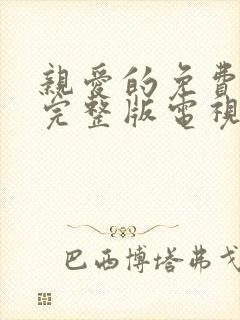 親愛的免費
完整版電視
巴西博塔弗戈